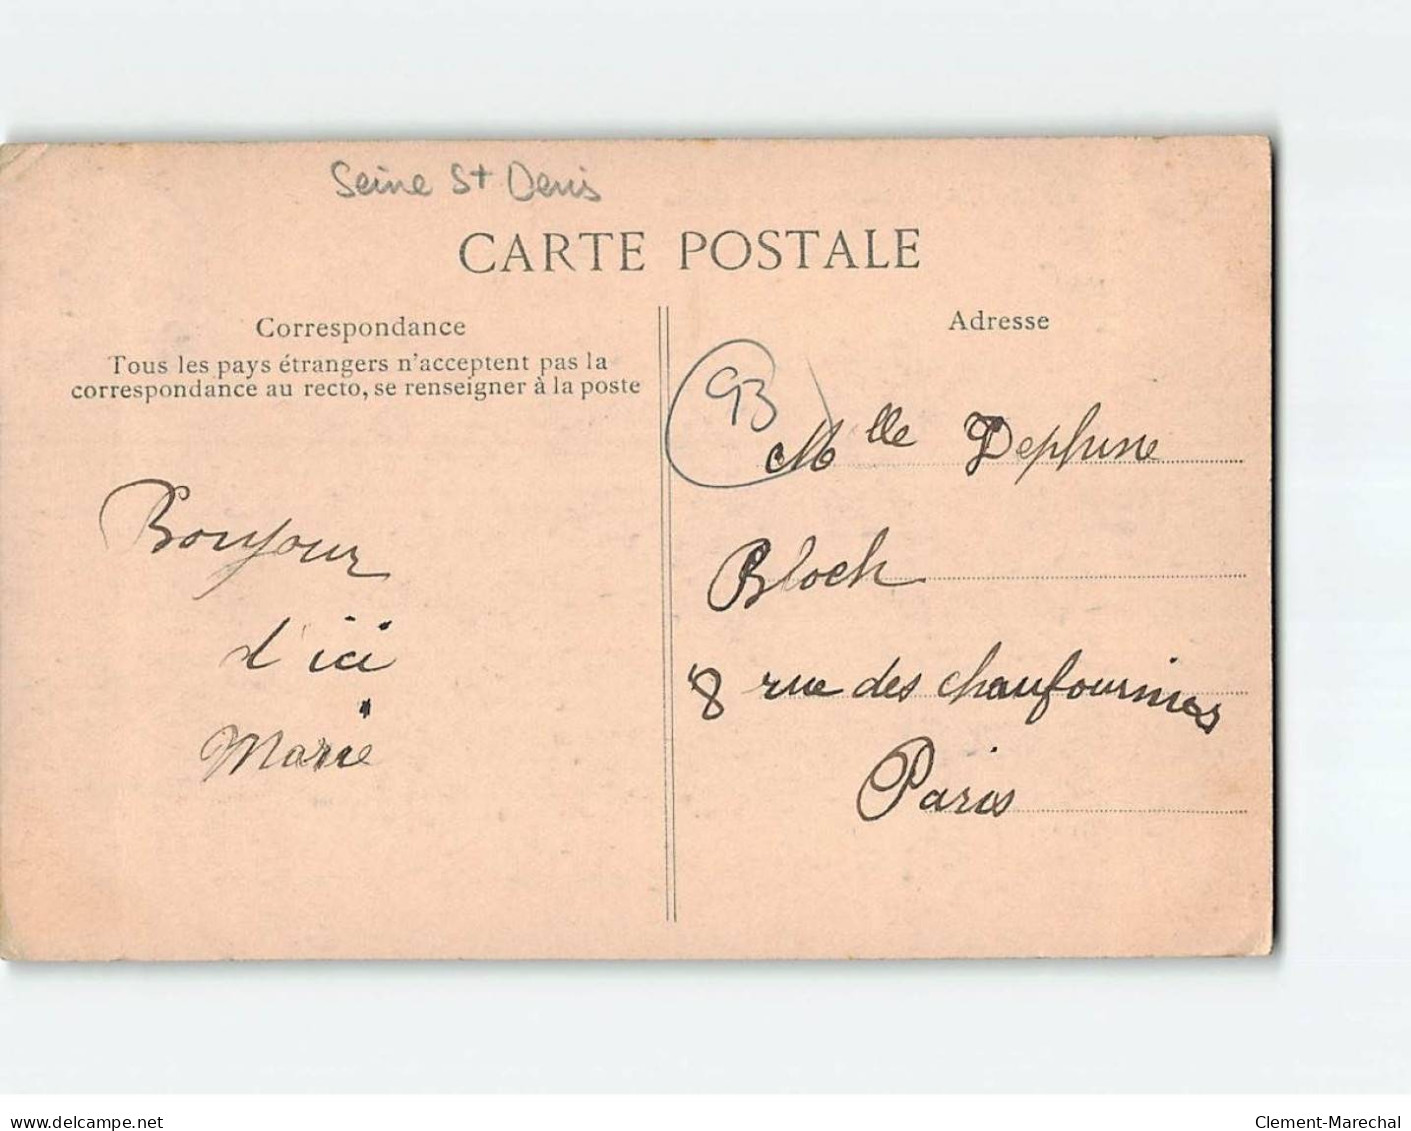 Seine St Denis
CARTE POSTALE
Correspondance
Tous les pays étrangers n'acceptent pas la
correspondance au recto, se renseigner à la poste
Bonjour
d'ici
Marie
Adresse
93
Mlle Dephine
Bloch
8 rue des chaufournies
Paris
delcampe.net
Clement-Marechal